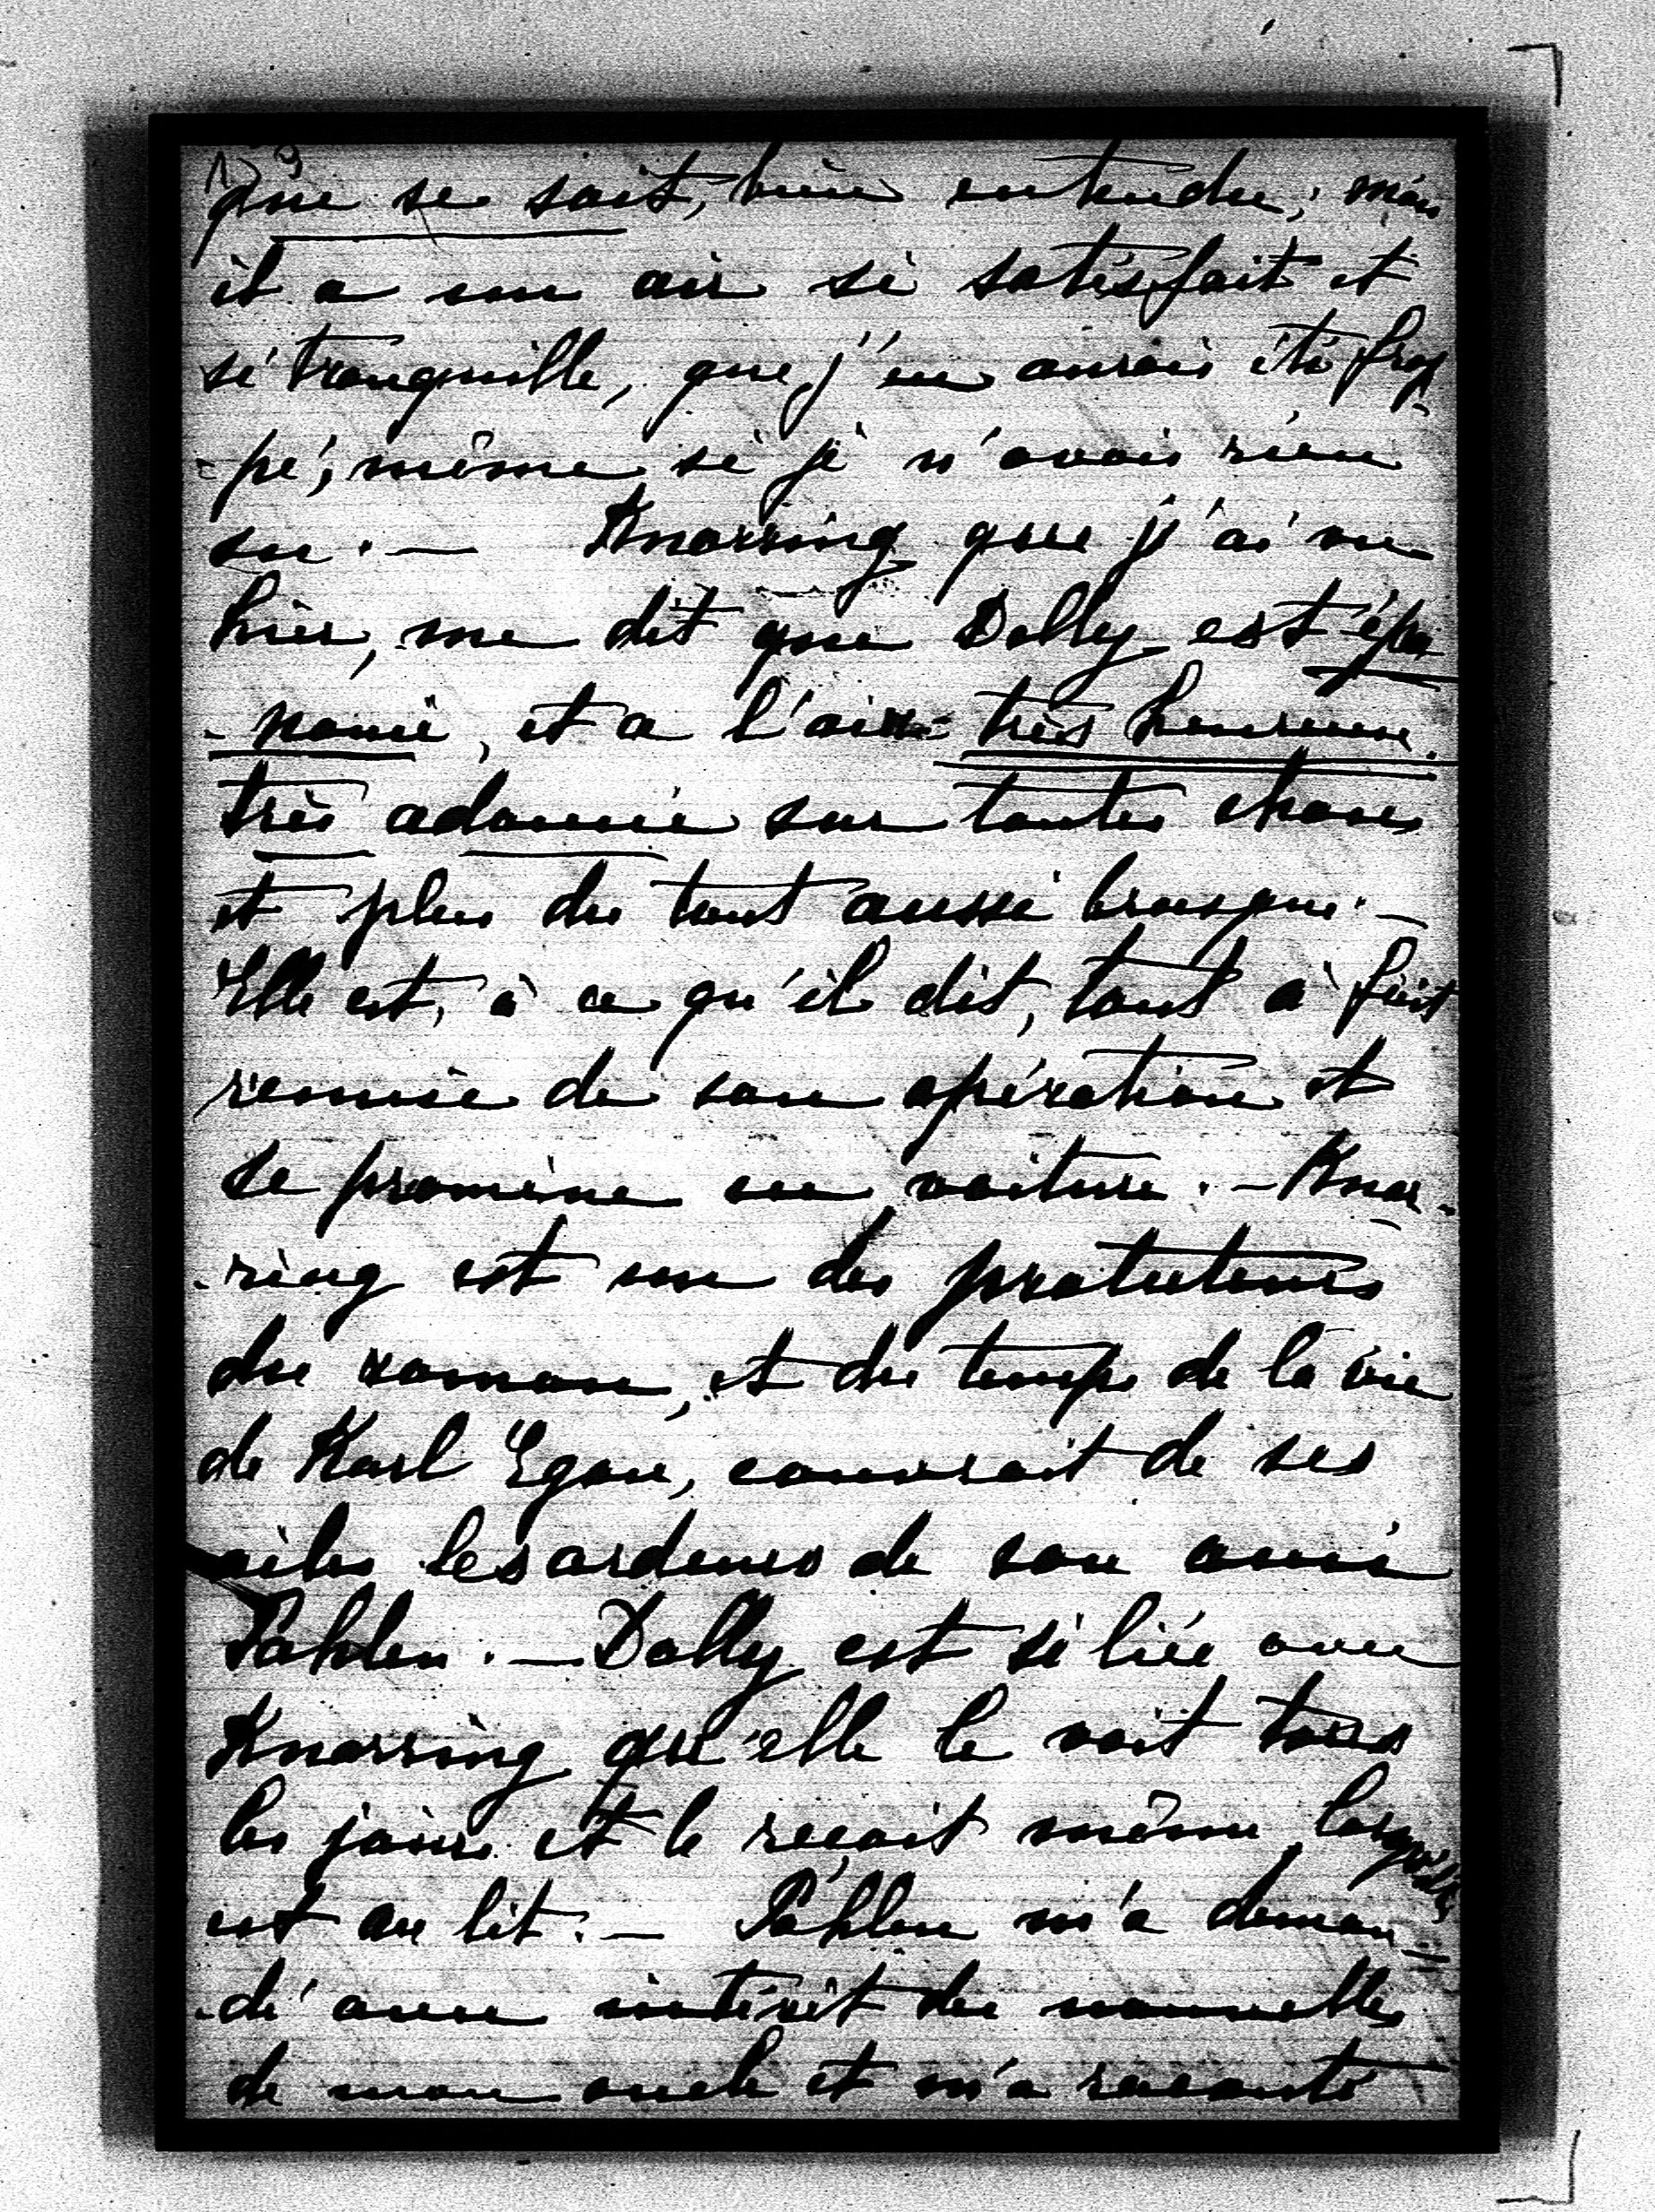 159
que se soit, bien entendu; mais
il a un air si satisfait et
si tranquille, que j'en aurais été frap
-pé, même si je n'avais rien
su. — Knorring que j'ai vu
hier, me dit que Dolly est épa
-nouie, et a l'air très heureuse.
très adoucie sur toutes choses
et plus du tout aussi brusque. —
Elle est, à ce qu'il dit, tout à fait
remise de son opération et
se promène en voiture. — Knor-
-ring est un des protecteurs
du roman, et du temps de la vie
de Karl Egon, couvrait de ses
ailes les ardeurs de son ami
Pahlen. — Dolly est si liée avec
Knorring qu'elle le voit tous
les jours et le reçoit même lorsqu'elle
est au lit. — Pahlen m'a deman=
-dé avec intérêt des nouvelles
de mon oncle et m'a raconté